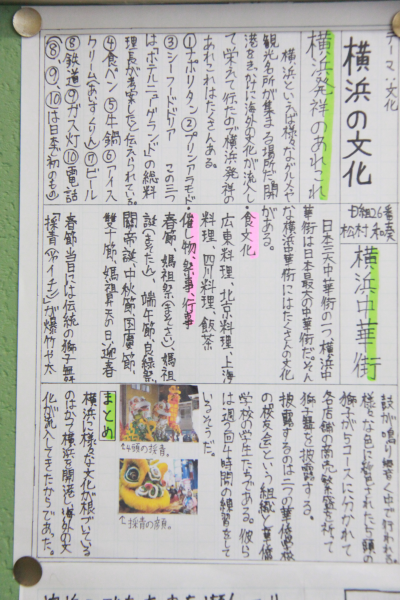 テーマ：文化
横浜の文化
横浜発祥のあれこれ
横浜といえば様々なグルメや
観光名所が集まる場所だ。開
港をきっかけに海外の文化が流入し
て栄えて行たので横浜発祥の
あれこれはたくさんある。
①ナポリタン ②プリンアラモード
③シーフードドリア この三つ
は「ホテルニューグランド」の総料
理長が考案したと伝えられている。
④食パン ⑤牛鍋 ⑥アイス
クリーム(あいすくりん) ⑦ビール
⑧鉄道 ⑨ガス灯 ⑩電話
(⑧、⑨、⑩は日本初のもの)
組26番
松村
横浜中華街
日本三大中華街の一つ、横浜中
華街は日本最大の中華街だ。そん
な横浜中華街にはたくさんの文化
がある。
・食文化
広東料理、北京料理、上海
料理、四川料理、飲茶
・催し物、祭事、行事
春節、媽祖祭(まそさい)、媽祖
誕(まそたん)、端午節、良縁祭、
関帝誕、中秋節、国慶節、
双十節、媽祖昇天の日、迎春
春節当日には伝統の獅子舞
「採青(ツァイチン)」が爆竹や太
鼓が鳴り響く中で行われる。
様々な色に彩られた十頭の
獅子が5コースに分かれて
各店舗の商売繁盛を祈って
獅子舞を披露する。
披露するのは二つの華僑組織
の校友会という組織と華僑
学校の学生たちである。彼ら
は週2回4時間の練習をして
いるそうだ。
↑4頭の採青。
↑採青の演員。
まとめ
横浜に様々な文化が根づいている
のはかつて横浜を開港し、海外の文
化が流入してきたからであった。